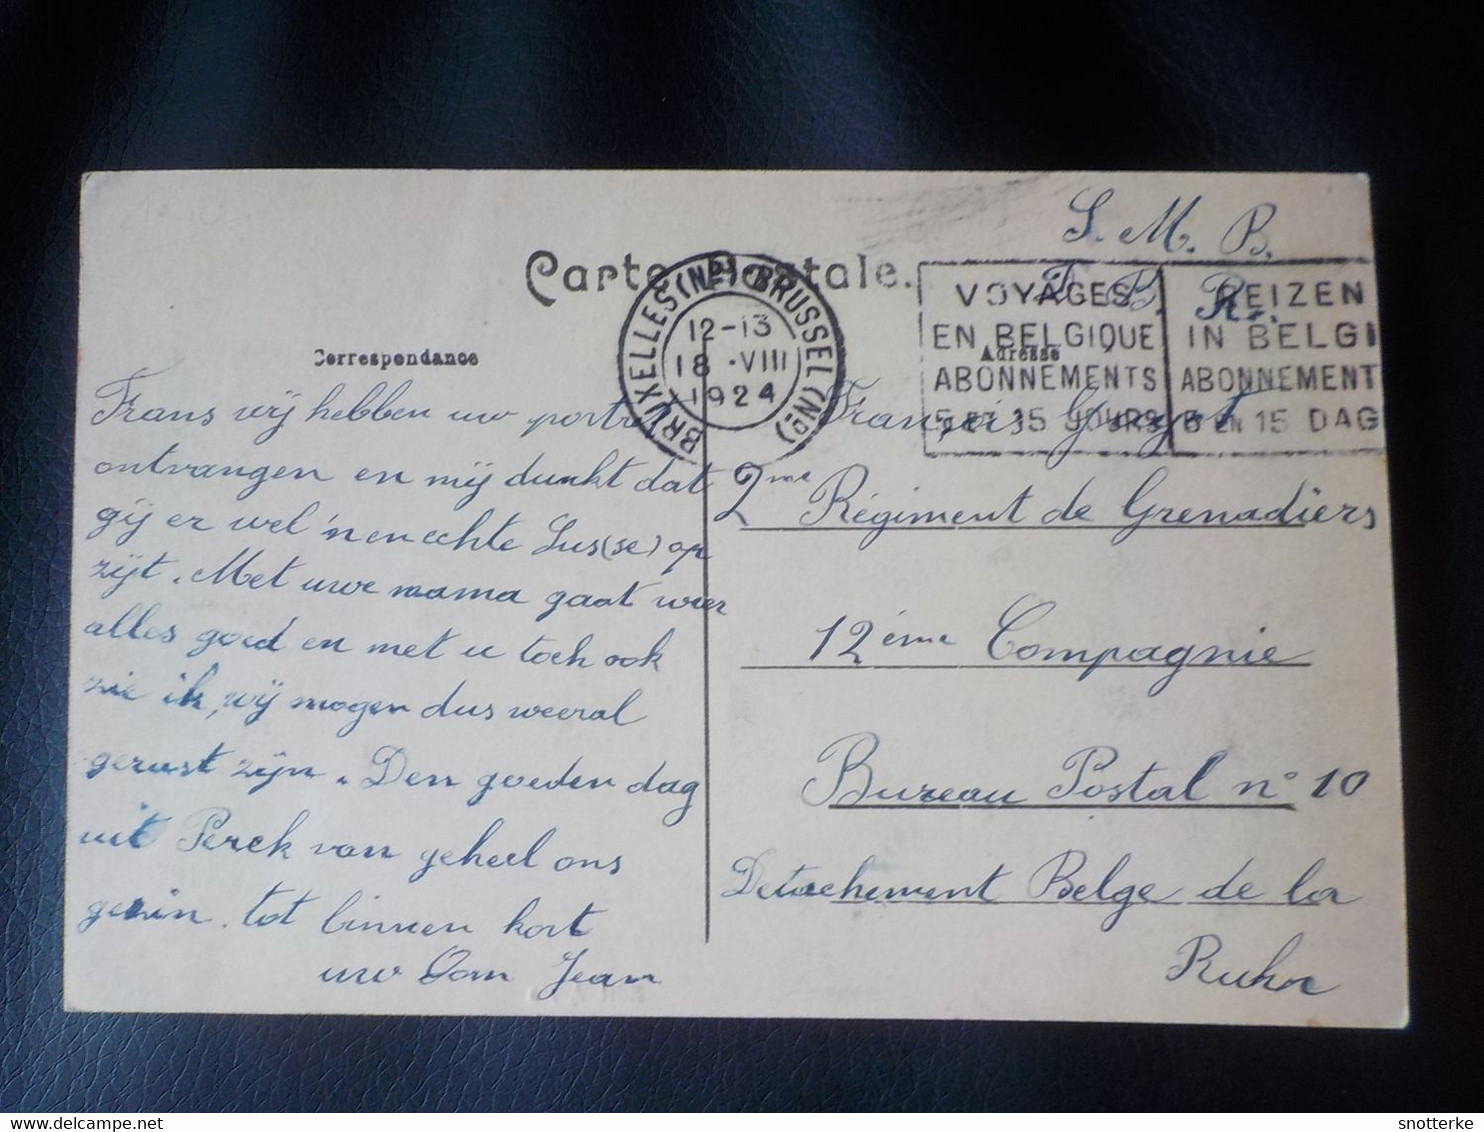 Carte postale.
S. M. B.
BRUXELLES (NP) BRUSSEL (Nᴅ)
12-13
18 .VIII
1924
VOYAGES
EN BELGIQUE
ABONNEMENTS
5 ET 15 JOURS
REIZEN
IN BELGI
ABONNEMENT
5 EN 15 DAG
Correspondance
Adresse
Frans wij hebben uw portr
ontvangen en mij dunkt dat
gij er wel 'nen echte Sus(se) op
zijt. Met uwe mama gaat weer
alles goed en met u toch ook
zie ik, wij mogen dus weeral
gerust zijn. Den goeden dag
uit Perck van geheel ons
gezin. tot binnen kort
uw Oom Jean
François
2me Régiment de Grenadiers
12ème Compagnie
Bureau Postal n° 10
Detachement Belge de la
Ruhr
snotterke